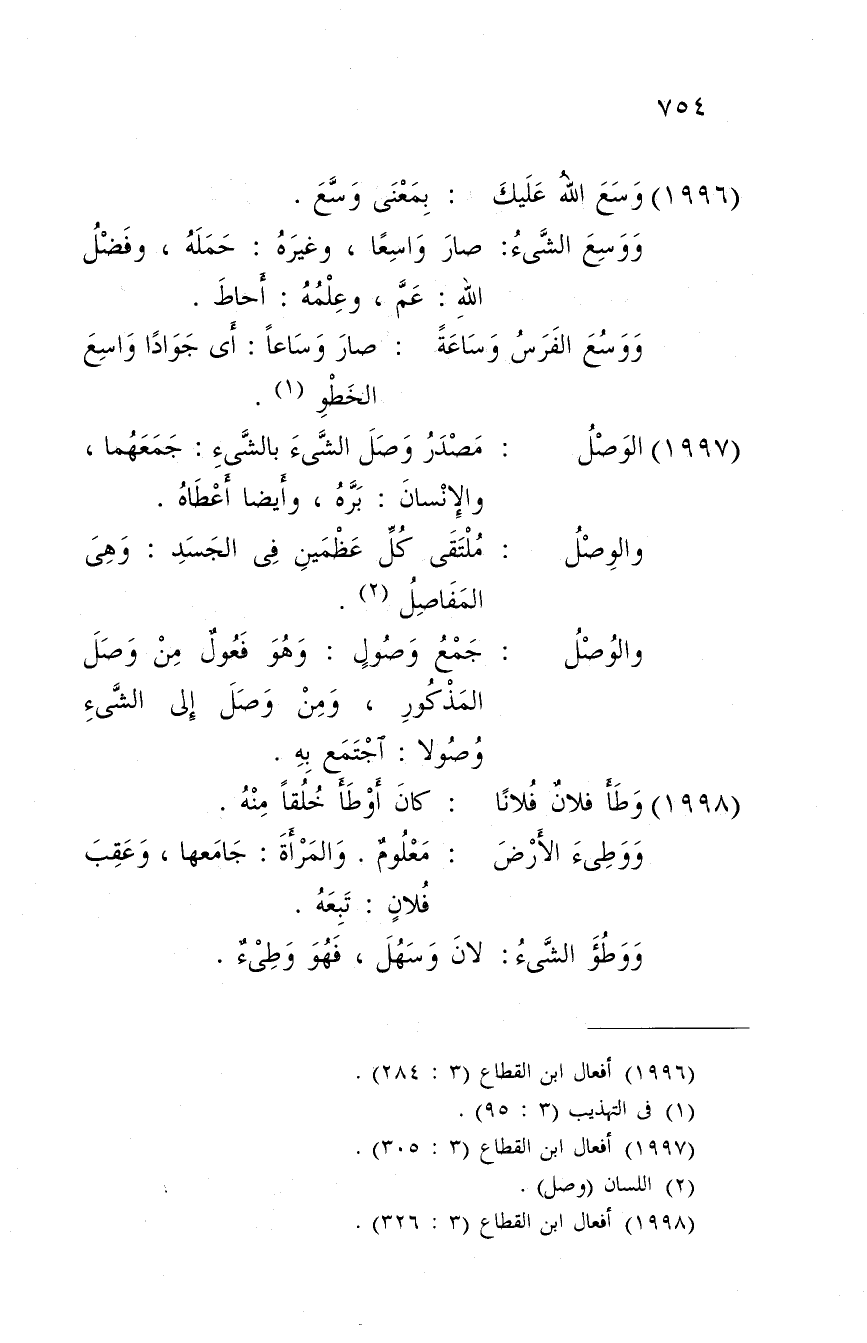 ٧٥٤
(١٩٩٦) وَسَعَ اللهُ عَلَيكَ : بِمَعْنَى وَسَّعَ .
وَوَسِعَ الشَّىءُ : صارَ وَاسِعًا ، وغيرَهُ : حَمَلَهُ ، وفَضْلُ
اللهِ : عَمَّ ، وعِلْمُهُ : أَحاطَ .
وَوَسُعَ الفَرَسُ وَسَاعَةً : صارَ وَسَاعاً : أَى جَوَادًا وَاسِعَ
الخَطْوِ (١) .
(١٩٩٧) الوَصْلُ : مَصْدَرُ وَصَلَ الشَّىءَ بالشَّىءِ : جَمَعَهُما ،
والإِنْسانَ : بَرَّهُ ، وأَيضا أَعْطَاهُ .
والوِصْلُ : مُلْتَقَى كُلِّ عَظْمَينِ فِى الجَسَدِ : وَهِىَ
المَفَاصِلُ (٢) .
والوُصْلُ : جَمْعُ وَصُولٍ : وَهُوَ فَعُولٌ مِنْ وَصَلَ
المَذْكُورِ ، وَمِنْ وَصَلَ إِلى الشَّىءِ
وُصُولا : ٱجْتَمَع بِهِ .
(١٩٩٨) وَطَأَ فلانٌ فُلانًا : كانَ أَوْطَأَ خُلُقاً مِنْهُ .
وَوَطِىءَ الأَرْضَ : مَعْلُومٌ . وَالمَرْأَةَ : جَامَعها ، وَعَقِبَ
فُلانٍ : تَبِعَهُ .
وَوَطُؤَ الشَّىءُ : لانَ وَسَهُلَ ، فَهُوَ وَطِىْءٌ .
(١٩٩٦) أفعال ابن القطاع (٣ : ٢٨٤) .
(١) فى التهذيب (٣ : ٩٥) .
(١٩٩٧) أفعال ابن القطاع (٣ : ٣٠٥) .
(٢) اللسان (وصل) .
(١٩٩٨) أفعال ابن القطاع (٣ : ٣٢٦) .